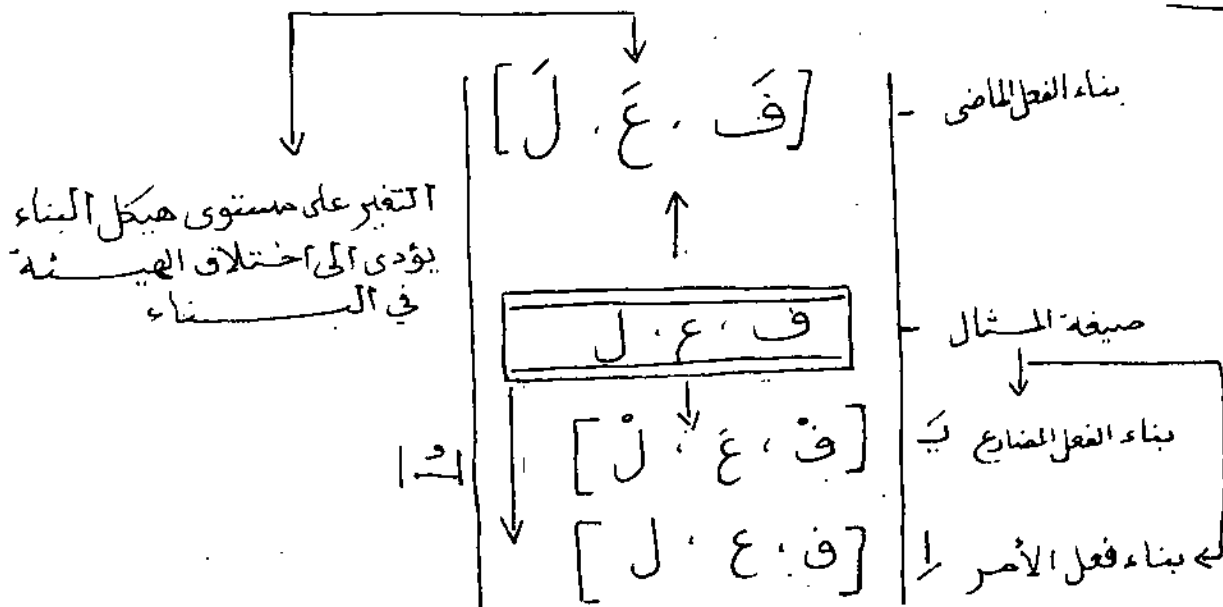 بناء الفعل الماضى - [فَ ، عَ ، لَ]
التغير على مستوى هيكل البناء
يؤدى الى اختلاف الهيـــئة
في البـــــناء
صيغة المـثال - ف ، ع ، ل
بناء الفعل المضارع يَـ [فْ ، عَ ، لْ] / ـُ /
بناء فعل الأمـر اِ [ف ، ع ، ل]